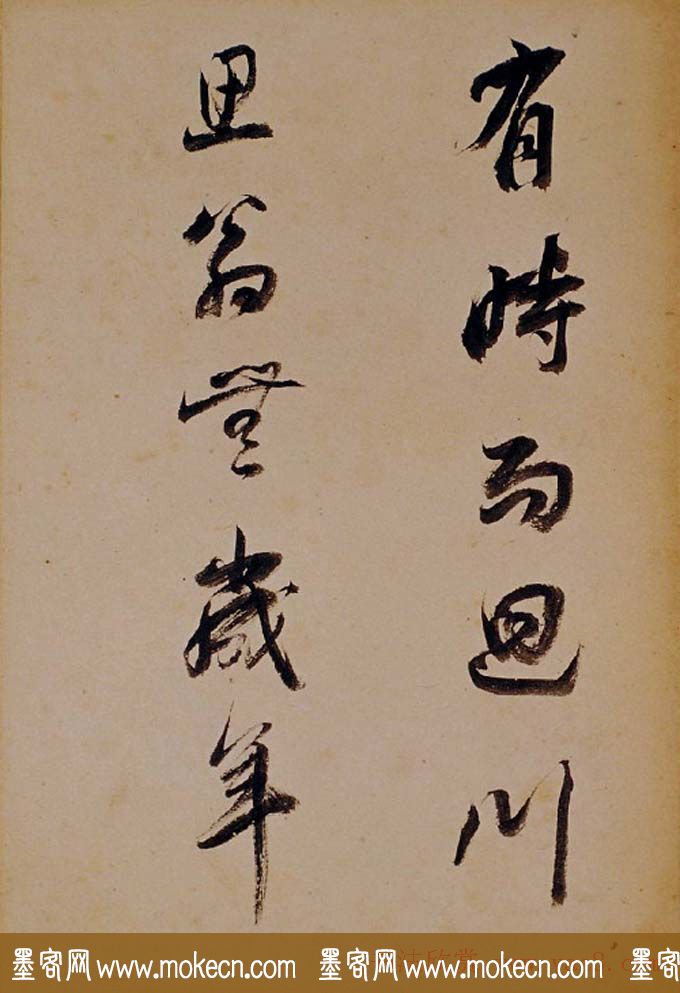 有時而迴川
翁無歲年
墨客网 www.mokecn.com 墨客网 www.mokecn.com 墨客